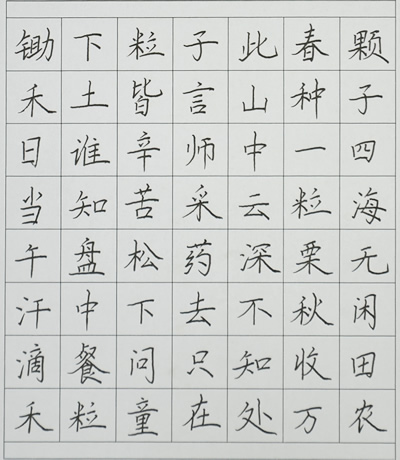 锄禾日当午汗滴禾
下土谁知盘中餐粒
粒皆辛苦松下问童
子言师采药去只在
此山中云深不知处
春种一粒粟秋收万
颗子四海无闲田农